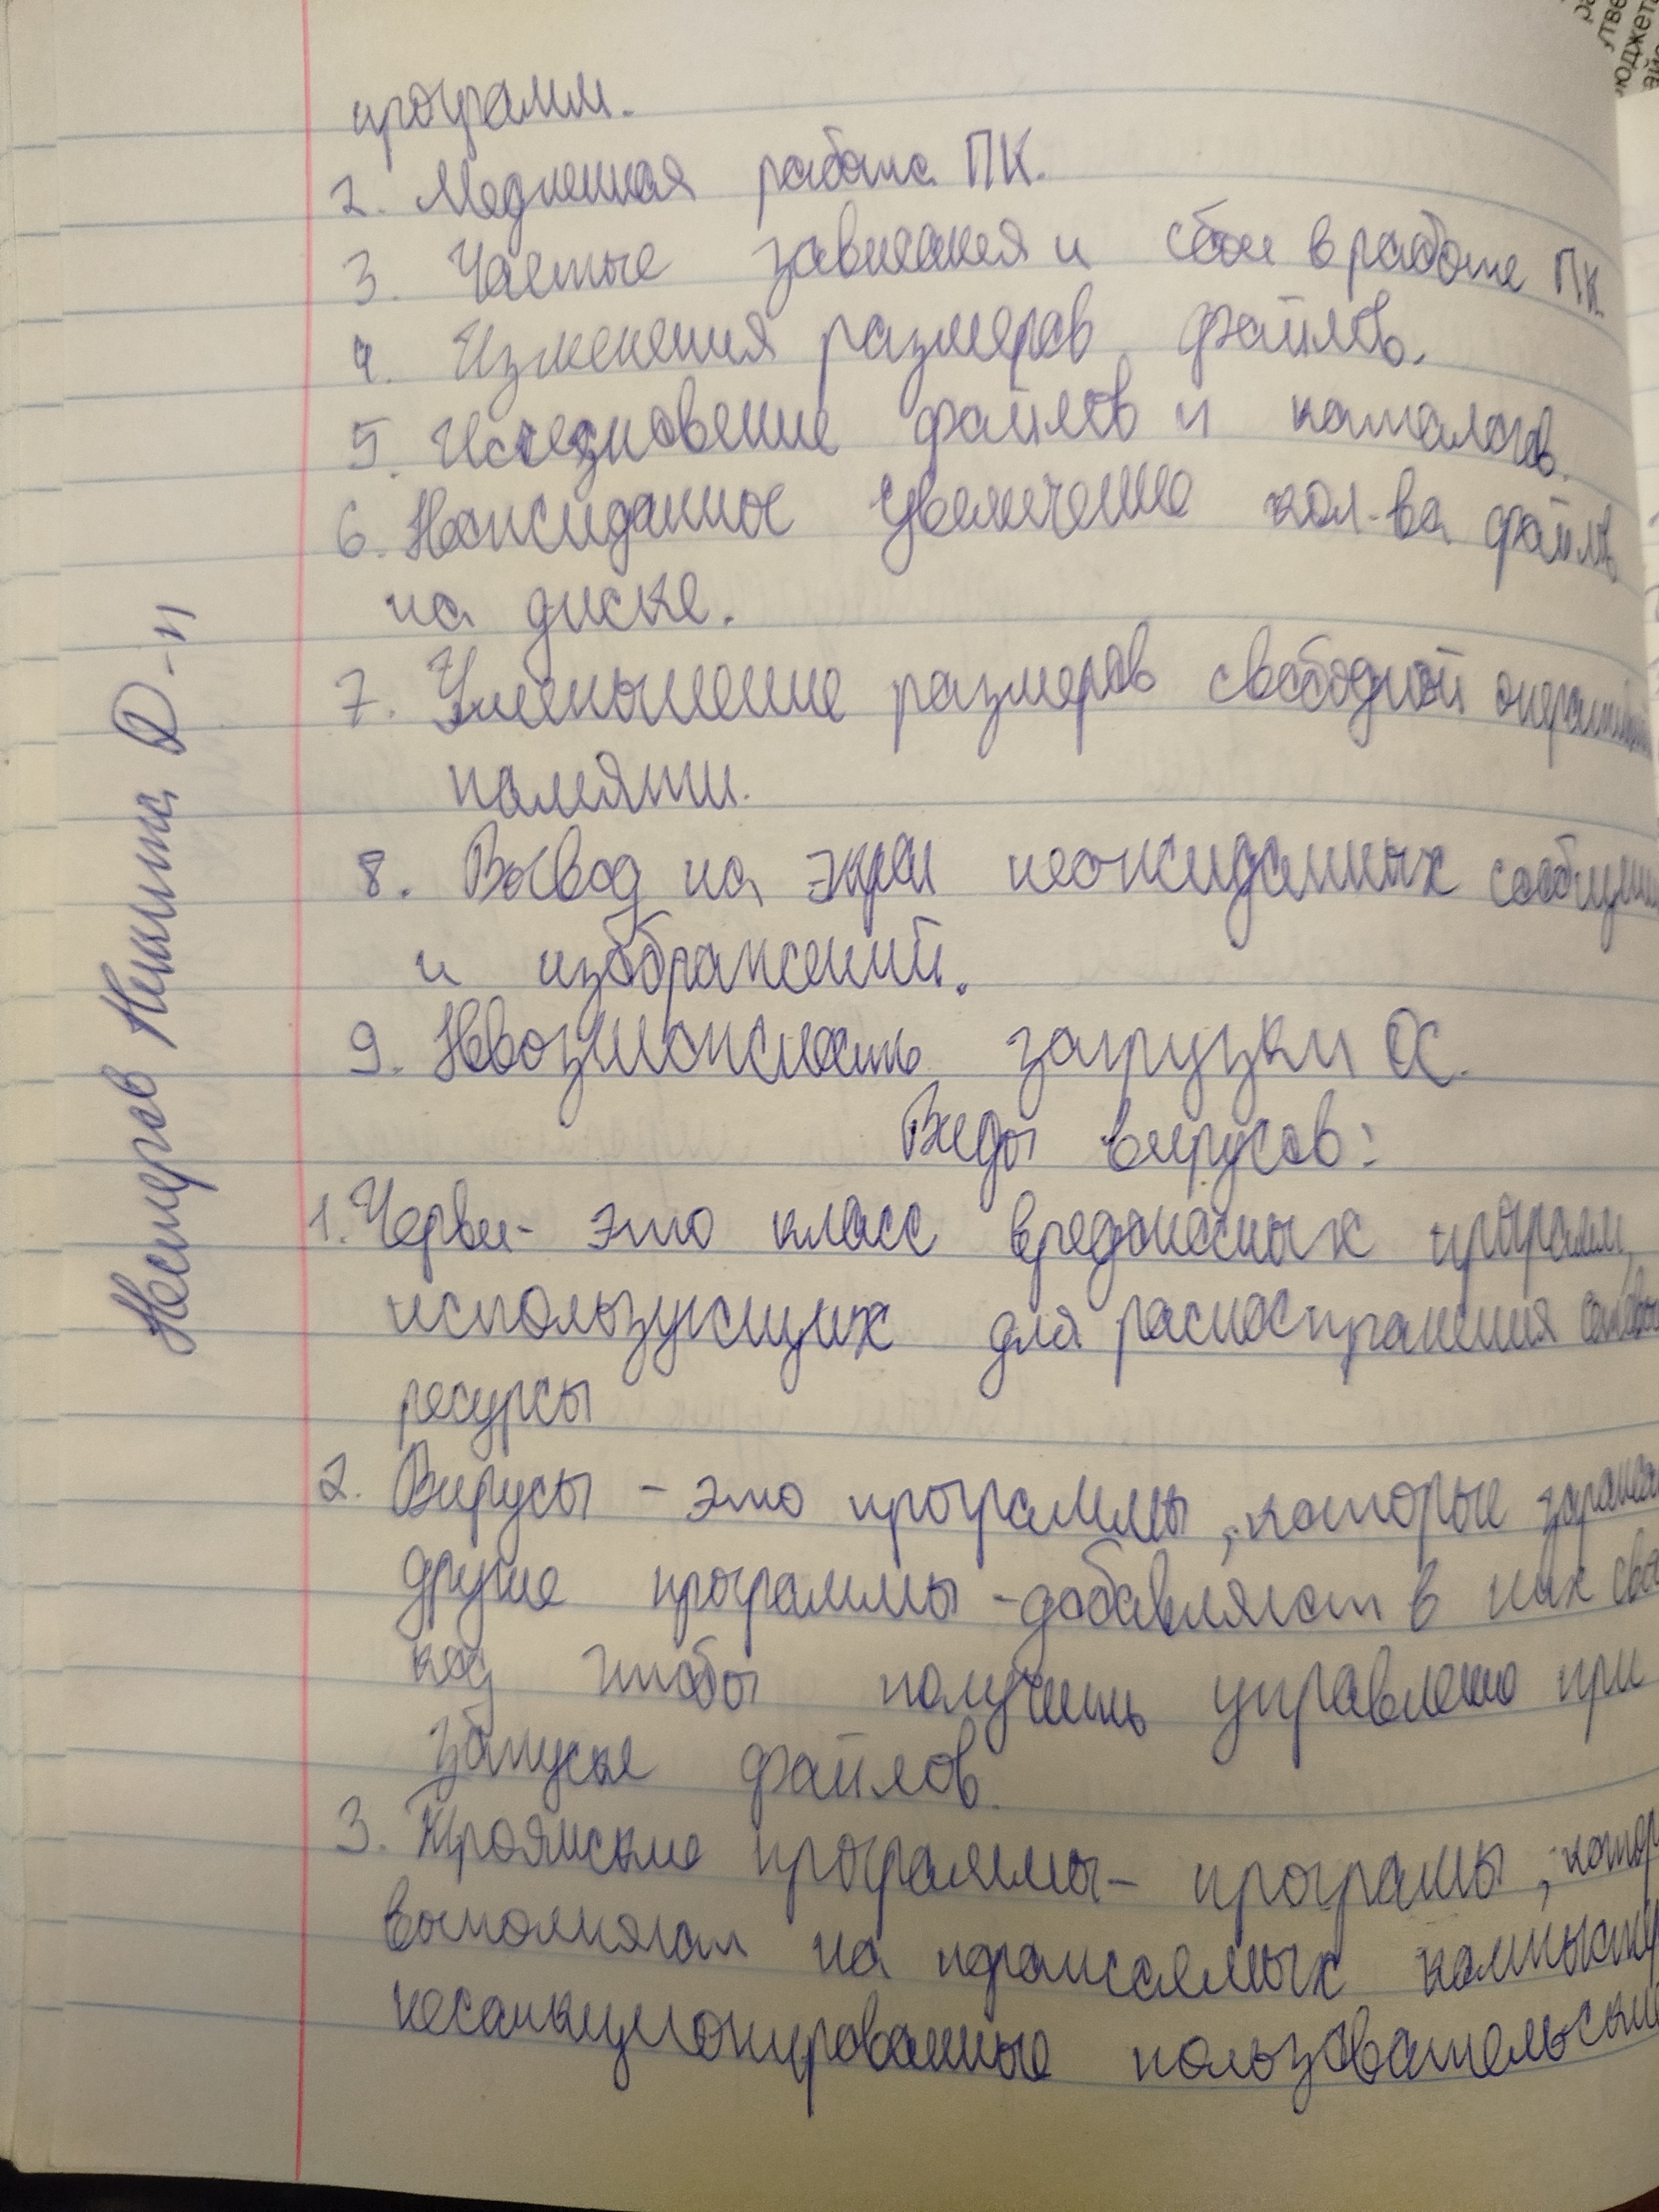 программ.
2. Медленная работа ПК.
3. Частые зависания и сбои в работе ПК.
4. Изменения размеров файлов.
5. Исчезновение файлов и каталогов.
6. Неожиданное увеличение кол-ва файлов
на диске.
7. Уменьшение размеров свободной
памяти.
8. Вывод на экран неожиданных
и изображений.
9. Невозможность загрузки ОС.
Виды вирусов:
1. Черви - это класс вредоносных программ,
использующих для распостранения
ресурсы
2. Вирусы - это программы, которые
другие программы - добавляют в них
код чтобы получить управление при
запуске файлов.
3. Троянские программы - програмы,
выполняют на
несанкционированные
Нестеров Никита Д-11